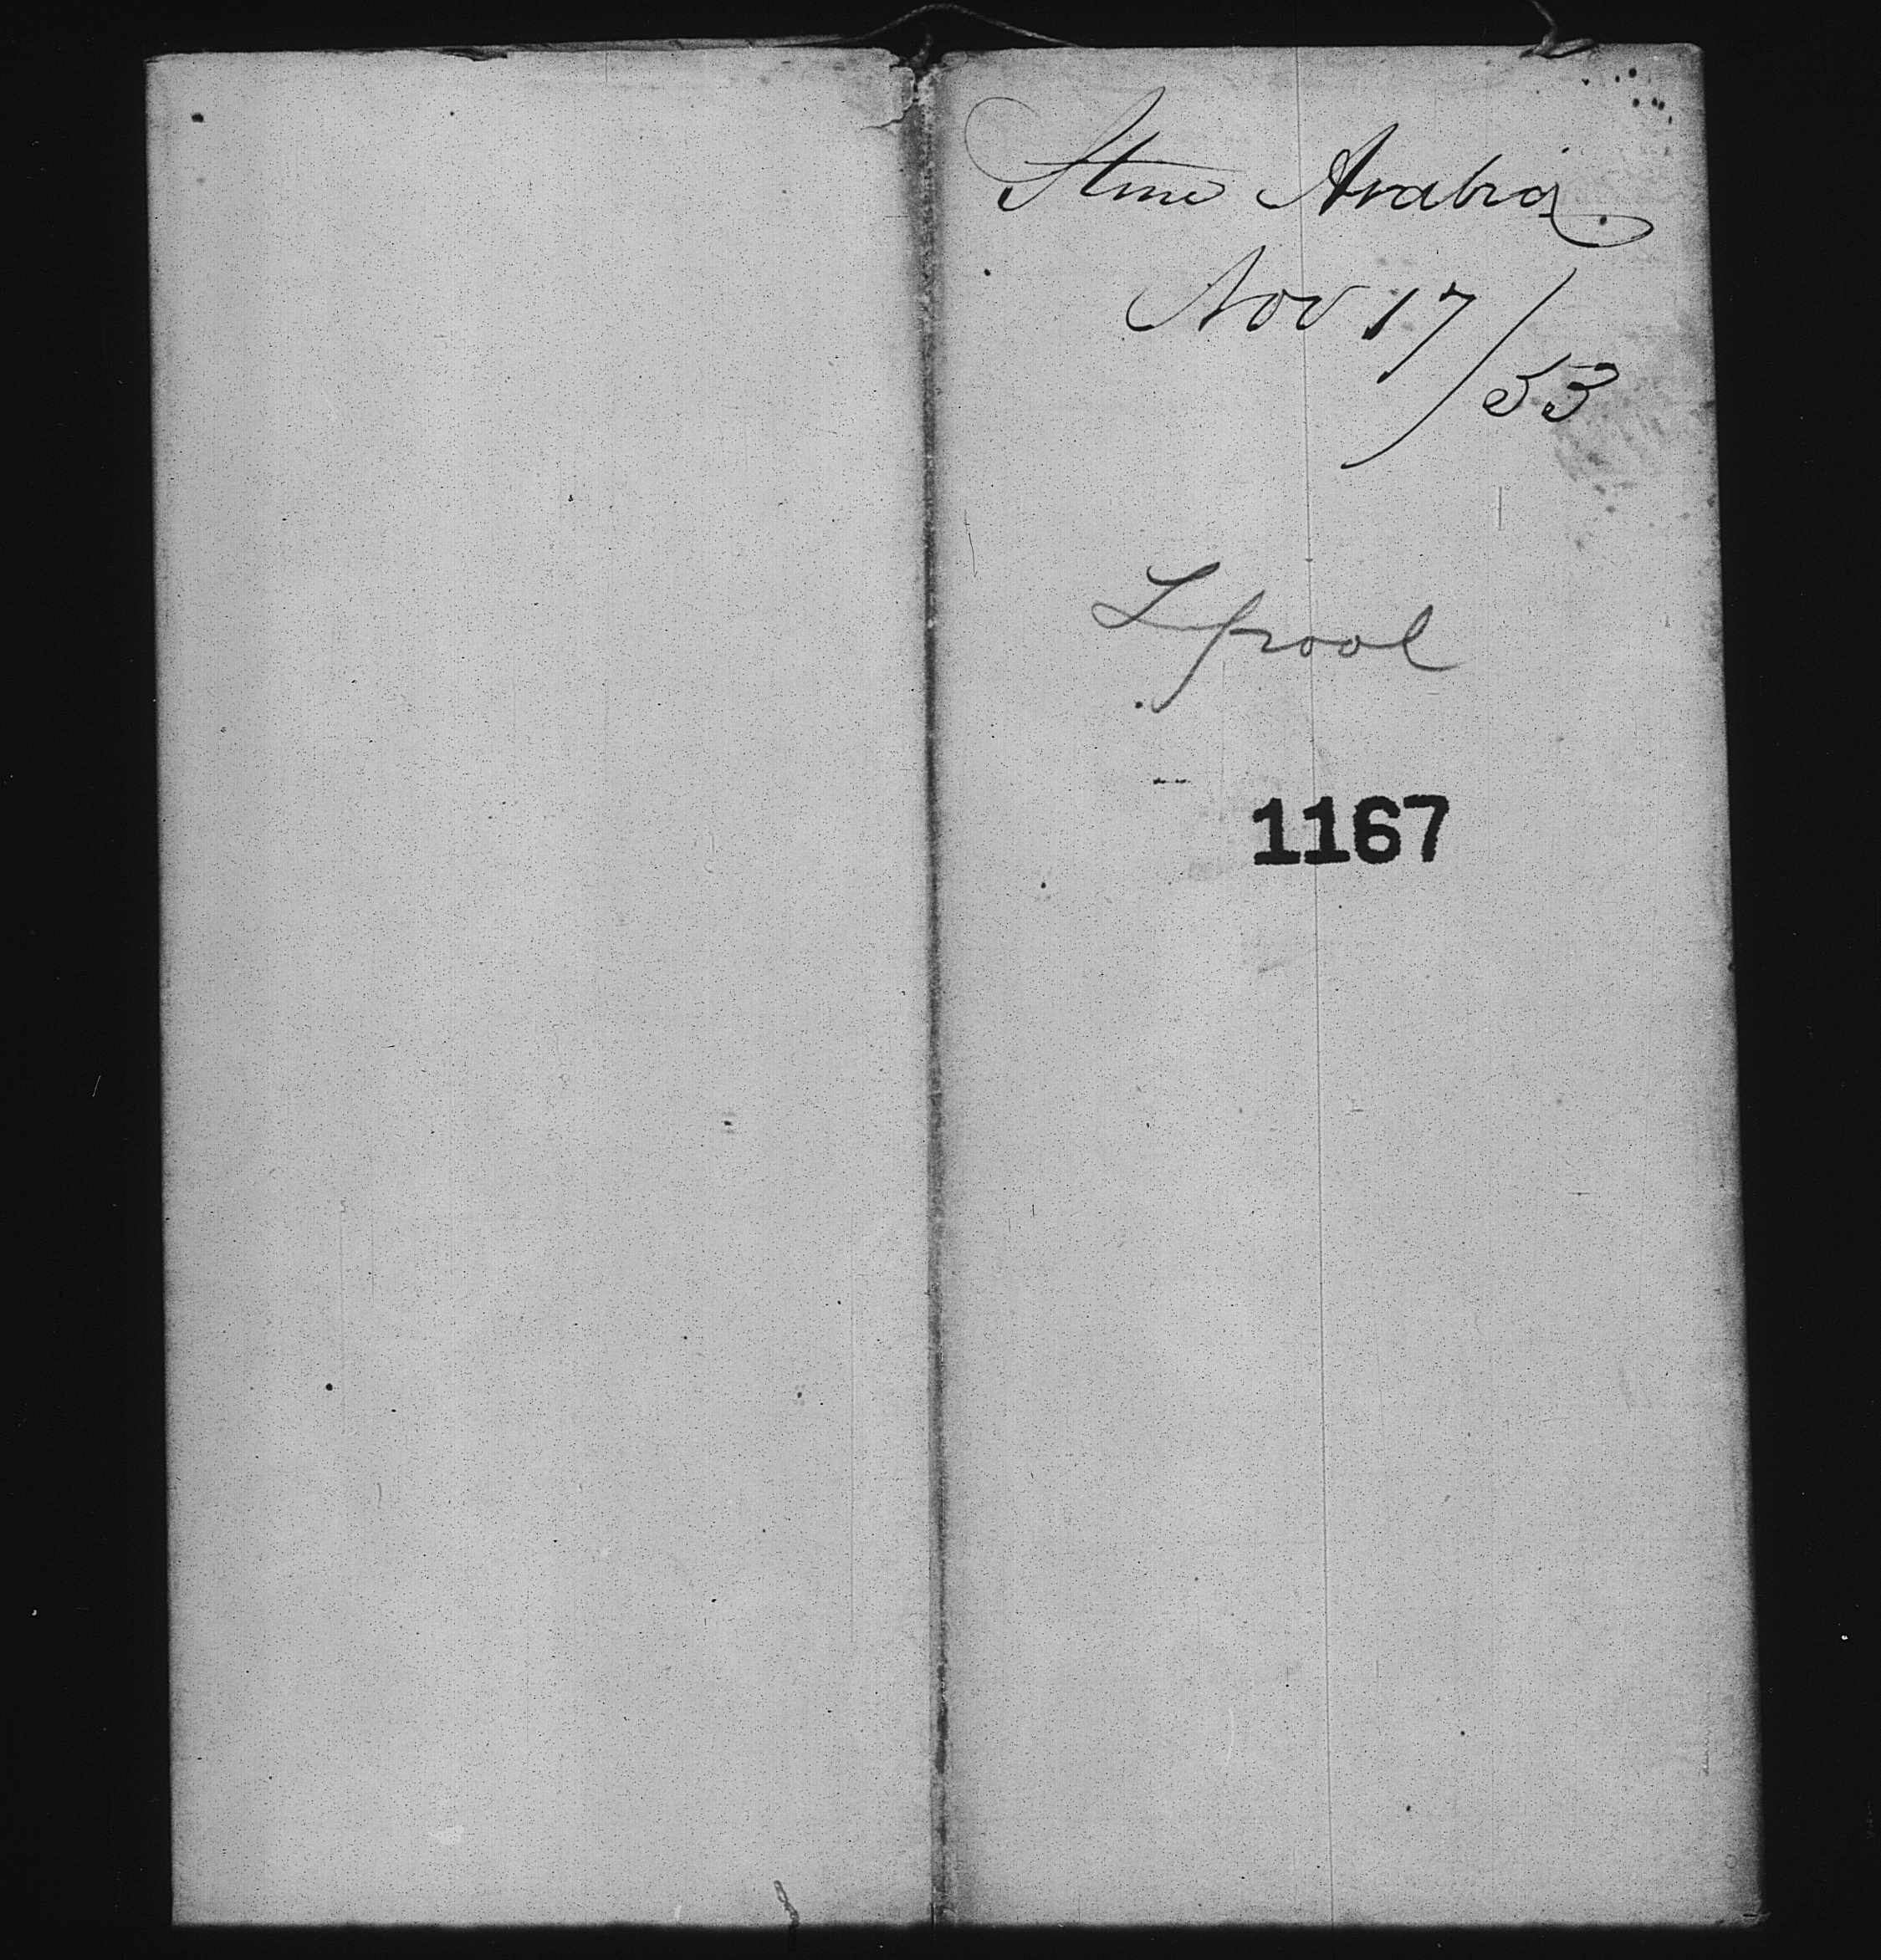 Stmr Arabia.
Nov 17/53
Lpool
1167